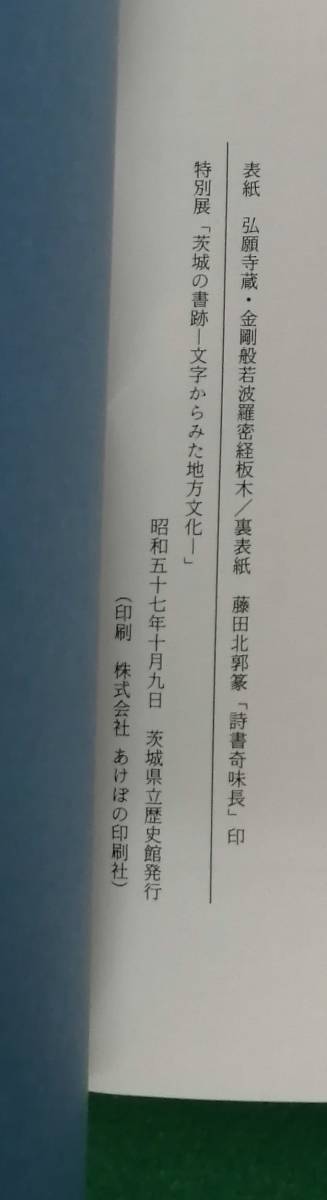 表紙　弘願寺蔵・金剛般若波羅密経板木／裏表紙　藤田北郭篆「詩書奇味長」印
特別展「茨城の書跡―文字からみた地方文化―」
昭和五十七年十月九日　茨城県立歴史館発行
（印刷　株式会社　あけぼの印刷社）